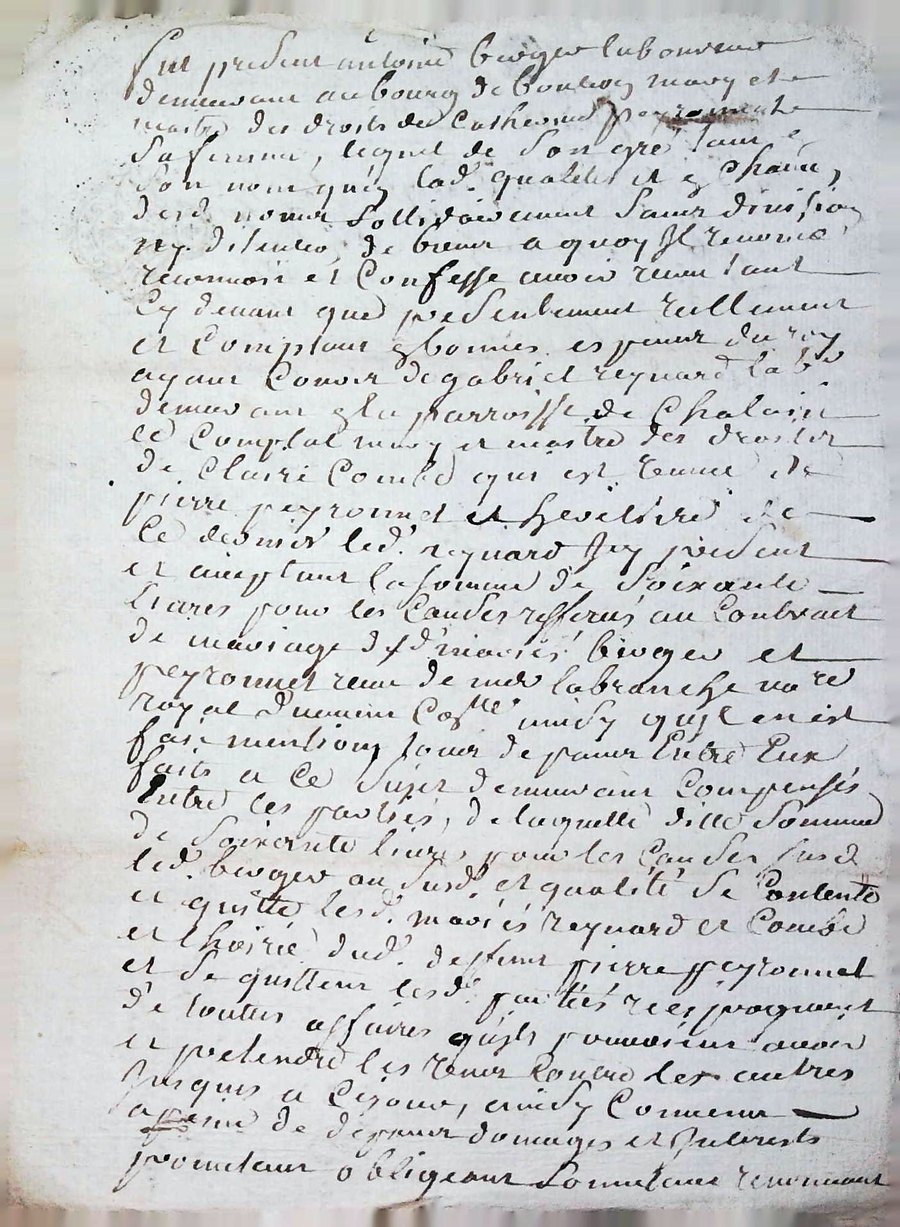 fut present antoine berger laboureur
demeurant au bourg de bonlieu mary et
maitre des droits de Catherine peyronnet
sa femme, lequel de son gré tant a
son nom qu'en lad. qualité et en Chacun
desd. noms sollidairement sans division
ny de biens a quoy Il renonce
reconnoit et Confesse avoir reçu tant
Cy devant que presentement reellement
et Comptant en bonnes espesses du roy
ayant Cours de gabriel reynard lab.r
demeurant en la parroisse de Chalain
le Comptal mary et maitre des droits
de Claire Combe qui est veuve de
pierre peyronnet et heritiere de
Ce dernier led. reynard Icy present
et aceptant la somme de soixante
livres pour les Causes refferés au Contract
de mariage desd. mariés berger et
peyronnet reçu de me labranche no.re
royal ainsy qu'il en est
fait mention tous depans Entre Eux
faits a Ce sujet demeurant Compensés
Entre les parties, de laquelle ditte somme
de soixante livres pour les Causes susd.
led. berger au susd. et qualité se Contente
et quitte lesd. mariés reynard et Combe
et lhoirie dud. deffunt pierre peyronnet
et se quittent lesd. parties reciproquement
de toutes affaires qu'ils pouvoient avoir
et pretendre les uns Contre les autres
Jusques a Cejour, ainsy Convenu
a peine de depans domages et Interests
promettant obligeant soumetant renonceant